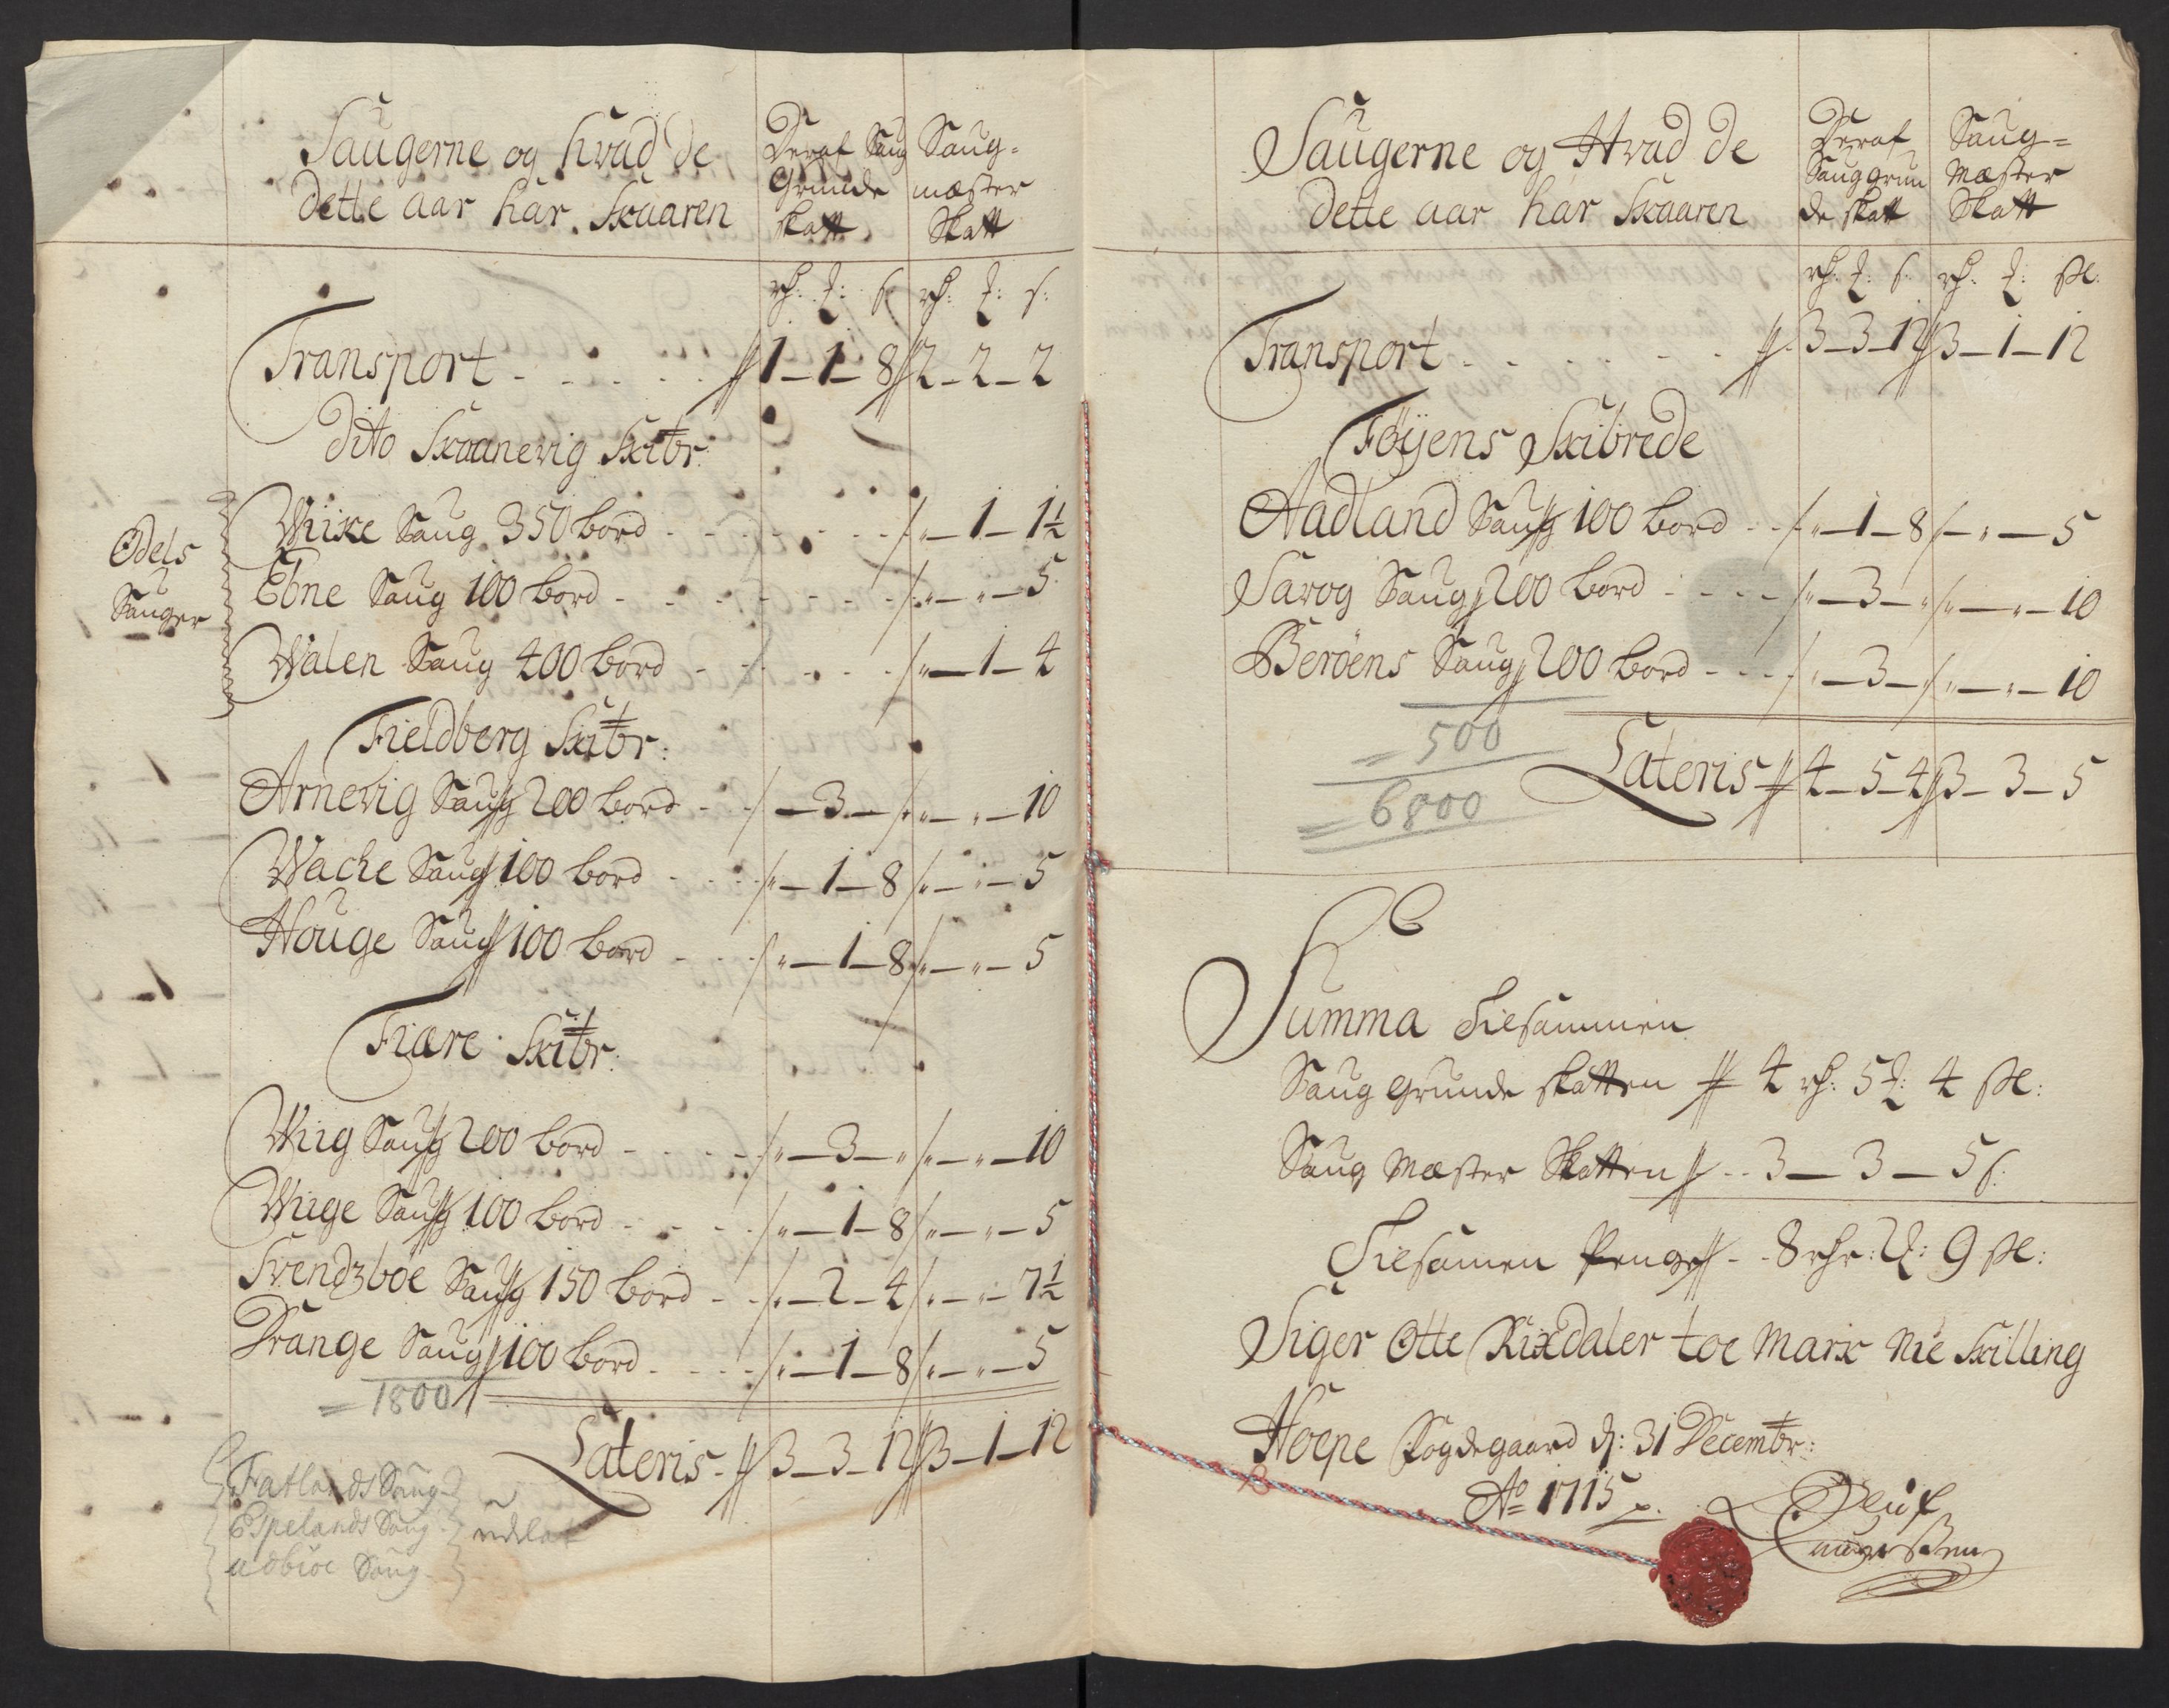 Saugerne og hvad de
dette aar har Skaaren
Deraf Saug
Grunde
skatt
Saug-
mæster
Skatt
rh: ʒ: s rh: ʒ: s:
Transport - - - - - 1 - 1 - 8 2 - 2 - 2
dito Skaanevig Skibr:
Odels
Sauger
Wiike Saug 350 bord - - - " - 1 - 1½
Ebne Saug 100 bord - - - " - " - 5
Walen Saug 400 bord - - - " - 1 - 4
Fieldberg Skibr:
Arnevig Saug 200 bord - - - 3 - " - " - 10
Wache Saug 100 bord - - " - 1 - 8 " - " - 5
Houge Saug 100 bord - - " - 1 - 8 " - " - 5
Fiære Skibr:
Wiig Saug 200 bord - - - " - 3 - " " - " - 10
Wiige Saug 100 bord - - - " - 1 - 8 " - " - 5
Svendzböe Saug 150 bord - - " - 2 - 4 " - " - 7½
Drange Saug 100 bord - - - " - 1 - 8 " - " - 5
= 1800
Lateris - 3 - 3 - 12 3 - 1 - 12
Fatlands Saug
Espelands Saug
Udbioe Saug
Saugerne og Hvad de
dette aar har Skaaren
Deraf
Saug grun
de skatt
Saug=
Mæster
Skatt
rh: ʒ: s: rh: ʒ: ßl:
Transport - - - - - 3 - 3 - 12 3 - 1 - 12
Føÿens Skibrede
Aadland Saug 100 bord - - " - 1 - 8 - " - 5
Sarog Saug 200 bord - - - " - 3 - " " - " - 10
Beröens Saug 200 bord - - - " - 3 - " - " - 10
= 500
= 6800
Lateris 4 - 5 - 4 3 - 3 - 5
Summa Tilsammen
Saug Grunde skatten 4 rh: 5 ʒ: 4 ßl:
Saug Mæster Skatten - - 3 - 3 - 5 s:
Tilsamen Penge - - 8 rhr: 2 ʒ: 9 ßl:
Siger Otte Rixdaler toe Mark Nie Skilling
Hoepe Fogdegaard d: 31 Decembr:
Ao 1715